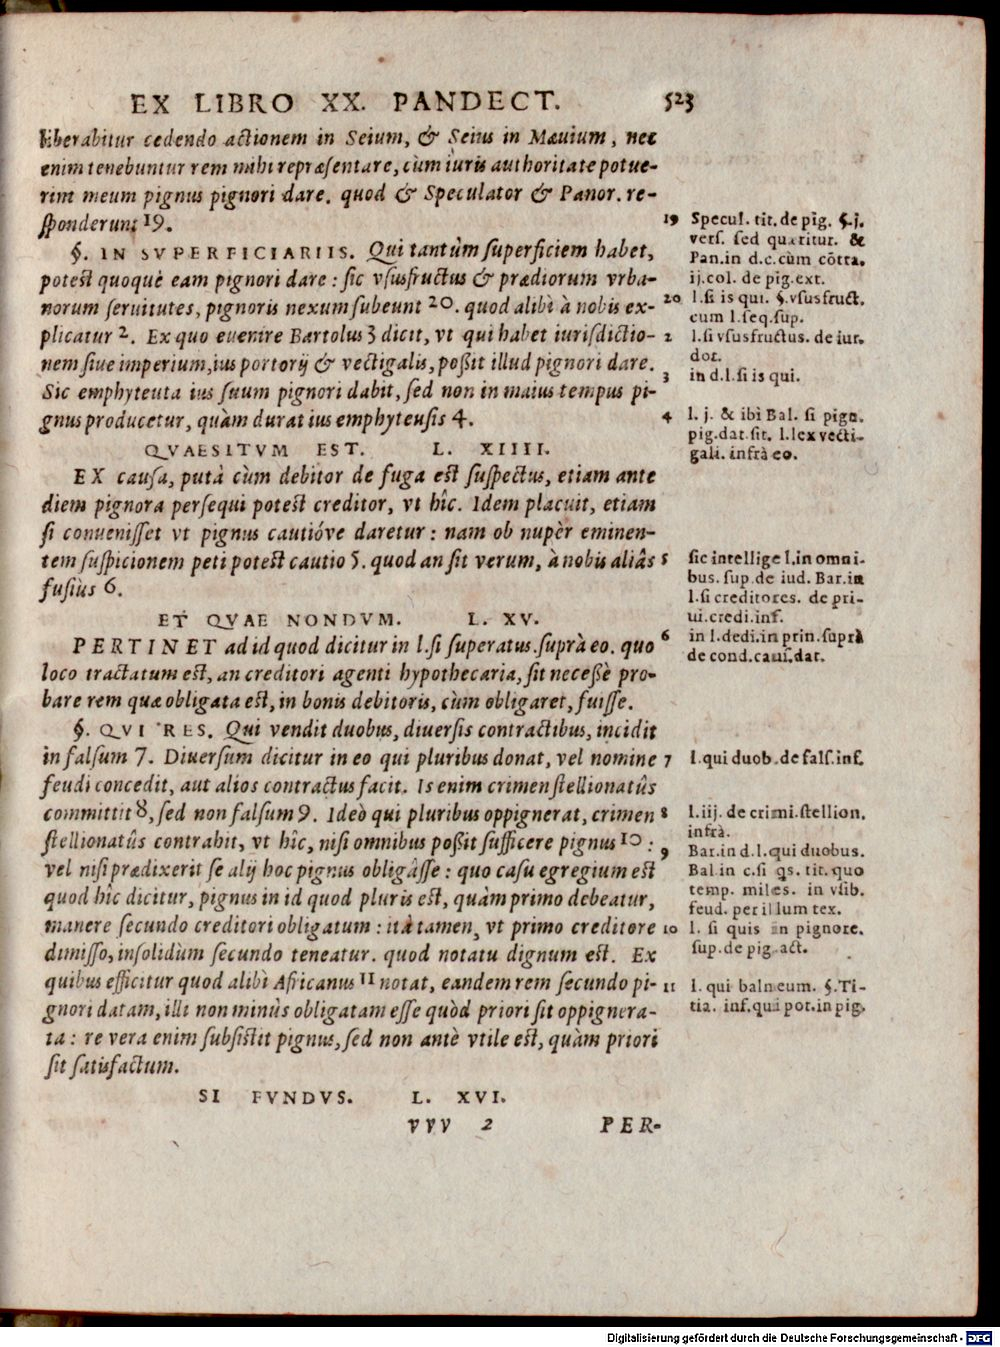 EX LIBRO XX. PANDECT. 523
liberabitur cedendo actionem in Seium, & Seius in Mæuium, nec
enim tenebuntur rem mihi repræsentare, cùm iuris authoritate potue-
rim meum pignus pignori dare. quod & Speculator & Panor. re-
sponderunt 19.
§. IN SVPERFICIARIIS. Qui tantùm superficiem habet,
potest quoquè eam pignori dare : sic vsusfructus & prædiorum vrba-
norum seruitutes, pignoris nexum subeunt 20. quod alibì à nobis ex-
plicatur 2. Ex quo euenire Bartolus 3 dicit, vt qui habet iurisdictio-
nem siue imperium, ius portorij & vectigalis, poßit illud pignori dare.
Sic emphyteuta ius suum pignori dabit, sed non in maius tempus pi-
gnus producetur, quàm durat ius emphyteusis 4.
QVAESITVM EST. L. XIIII.
EX causa, putà cùm debitor de fuga est suspectus, etiam ante
diem pignora persequi potest creditor, vt hîc. Idem placuit, etiam
si conuenisset vt pignus cautióve daretur : nam ob nupèr eminen-
tem suspicionem peti potest cautio 5. quod an sit verum, à nobis aliâs
fusiùs 6.
ET QVAE NONDVM. L. XV.
PERTINET ad id quod dicitur in l. si superatus. suprà eo. quo
loco tractatum est, an creditori agenti hypothecaria, sit neceßè pro-
bare rem quæ obligata est, in bonis debitoris, cùm obligaret, fuisse.
§. QVI RES. Qui vendit duobus, diuersis contractibus, incidit
in falsum 7. Diuersum dicitur in eo qui pluribus donat, vel nomine
feudi concedit, aut alios contractus facit. Is enim crimen stellionatûs
committit 8, sed non falsum 9. Ideò qui pluribus oppignerat, crimen
stellionatûs contrahit, vt hîc, nisi omnibus poßit sufficere pignus 10 :
vel nisi prædixerit se alij hoc pignus obligâsse : quo casu egregium est
quod hîc dicitur, pignus in id quod pluris est, quàm primo debeatur,
manere secundo creditori obligatum : ità tamen, vt primo creditore
dimisso, insolidùm secundo teneatur. quod notatu dignum est. Ex
quibus efficitur quod alibì Africanus 11 notat, eandem rem secundo pi-
gnori datam, illi non minùs obligatam esse quòd priori sit oppignera-
ta : re vera enim subsistit pignus, sed non antè vtile est, quàm priori
sit satisfactum.
SI FVNDVS. L. XVI.
VVV 2 PER-
19 Specul. tit. de pig. §. j.
vers. sed quæritur. &
Pan. in d. c. cùm cōtra.
ij. col. de pig. ext.
20 l. si is qui. §. vsusfruct.
cum l. seq. sup.
2 l. si vsusfructus. de iur.
dot.
3 in d. l. si is qui.
4 l. j. & ibì Bal. si pign.
pig. dat. sit. l. lex vecti-
gali. infrà eo.
5 sic intellige l. in omni-
bus. sup. de iud. Bar. in
l. si creditores. de pri-
ui. credi. inf.
6 in l. dedi. in prin. suprà
de cond. caus. dat.
7 l. qui duob. de fals. inf.
8 l. iij. de crimi. stellion.
infrà.
9 Bar. in d. l. qui duobus.
Bal. in c. si qs. tit. quo
temp. miles. in vsib.
feud. per illum tex.
10 l. si quis in pignore.
sup. de pig. act.
11 l. qui balneum. §. Ti-
tia. inf. qui pot. in pig.
Digitalisierung gefördert durch die Deutsche Forschungsgemeinschaft - DFG